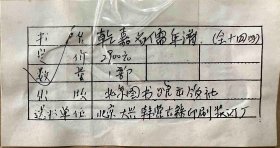 书名 乾嘉名儒年谱 (全十四册)
定价 2900元
数量 1部
出版 北京图书馆出版社
送书单位 北京大兴韩营古籍印刷装订厂